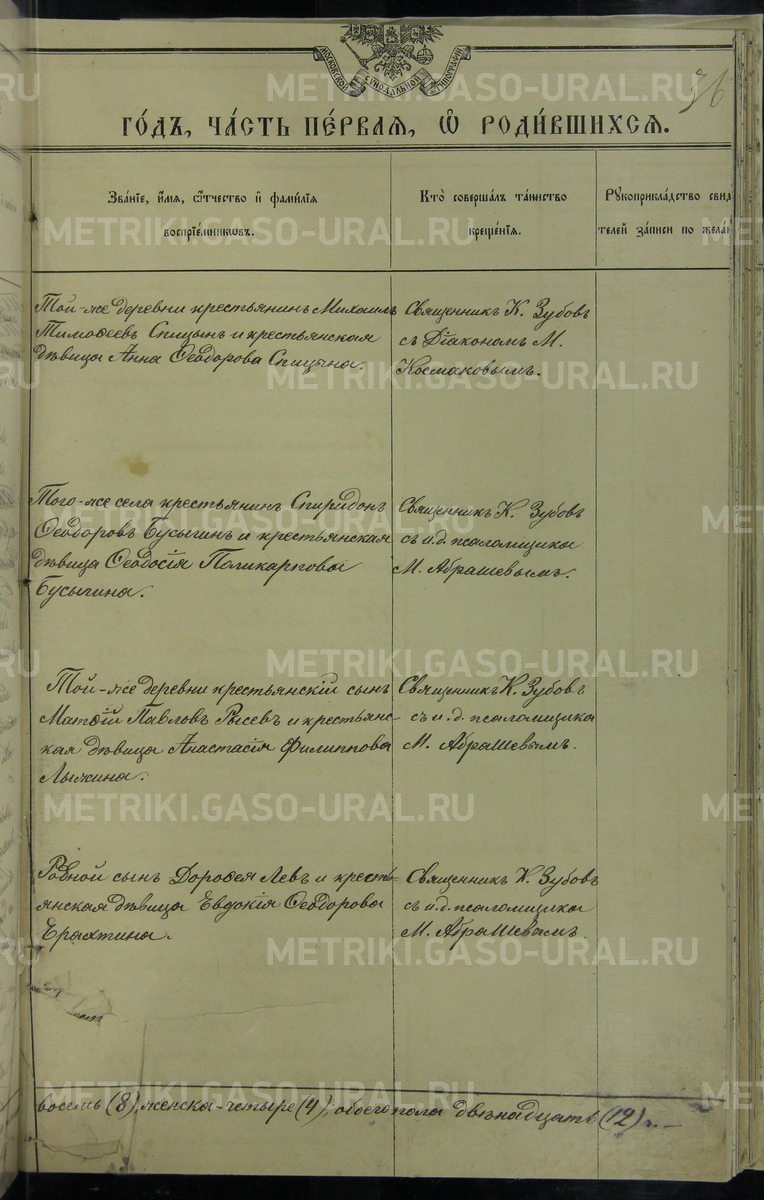 МОСКОВСКОЙ СѴНОДАЛЬНОЙ ТИПОГРАФІИ
36
ГО́ДЪ, ЧА́СТЬ ПЕ́РВАЯ, Ѽ РОДИ́ВШИХСЯ.
Зва́нїе, и҆́мѧ, ѻ҆́тчество и҆ фами́лїѧ
воспрїе́мникѡвъ.
Кто̀ соверша́лъ та́инство
креще́нїѧ.
Рꙋкоприкла́дство свид
телей за́писи по жела
Той-же деревни крестьянинъ Михаилъ
Тимоѳеевъ Спицынъ и крестьянская
дѣвица Анна Ѳеодорова Спицына.
Священникъ К. Зубовъ
съ Діакономъ М.
Космаковымъ.
Того-же села крестьянинъ Спиридонъ
Ѳеодоровъ Бусыгинъ и крестьянская
дѣвица Ѳеодосія Поликарпова
Бусыгина.
Священникъ К. Зубовъ
съ и.д. псаломщика
М. Абрашевымъ.
Той-же деревни крестьянскій сынъ
Матѳій Павловъ Рысевъ и крестьянс-
кая дѣвица Анастасія Филиппова
Лыжина.
Священникъ К. Зубовъ
съ и.д. псаломщика
М. Абрашевымъ.
Родной сынъ Дороѳея Левъ и кресть-
янская дѣвица Евдокія Ѳеодорова
Ерахтина.
Священникъ К. Зубовъ
съ и.д. псаломщика
М. Абрашевымъ.
восемь (8), женска-четыре (4); обоего пола двѣнадцать (12).
METRIKI.GASO-URAL.RU